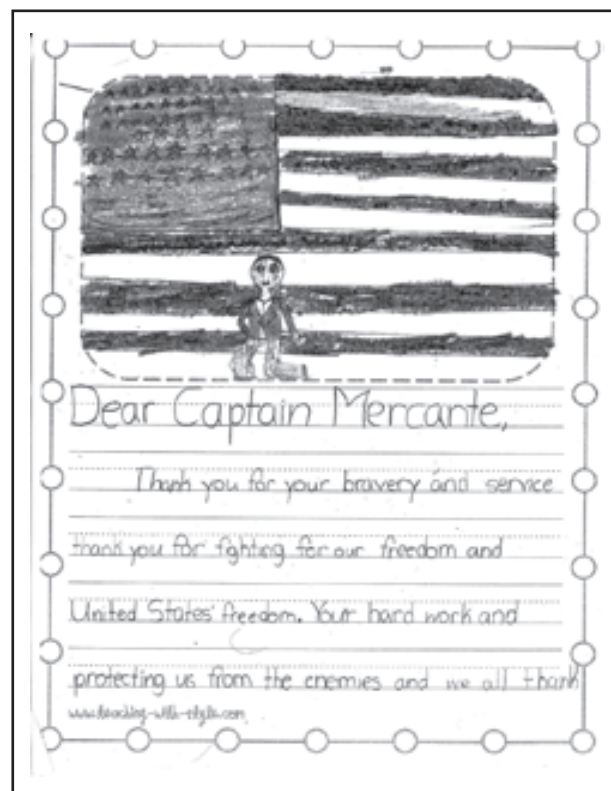 Dear Captain Mercante,
Thank you for your bravery and service
thank you for fighting for our freedom and
United States' freedom. Your hard work and
protecting us from the enemies and we all thank
www.teaching-with-style.com